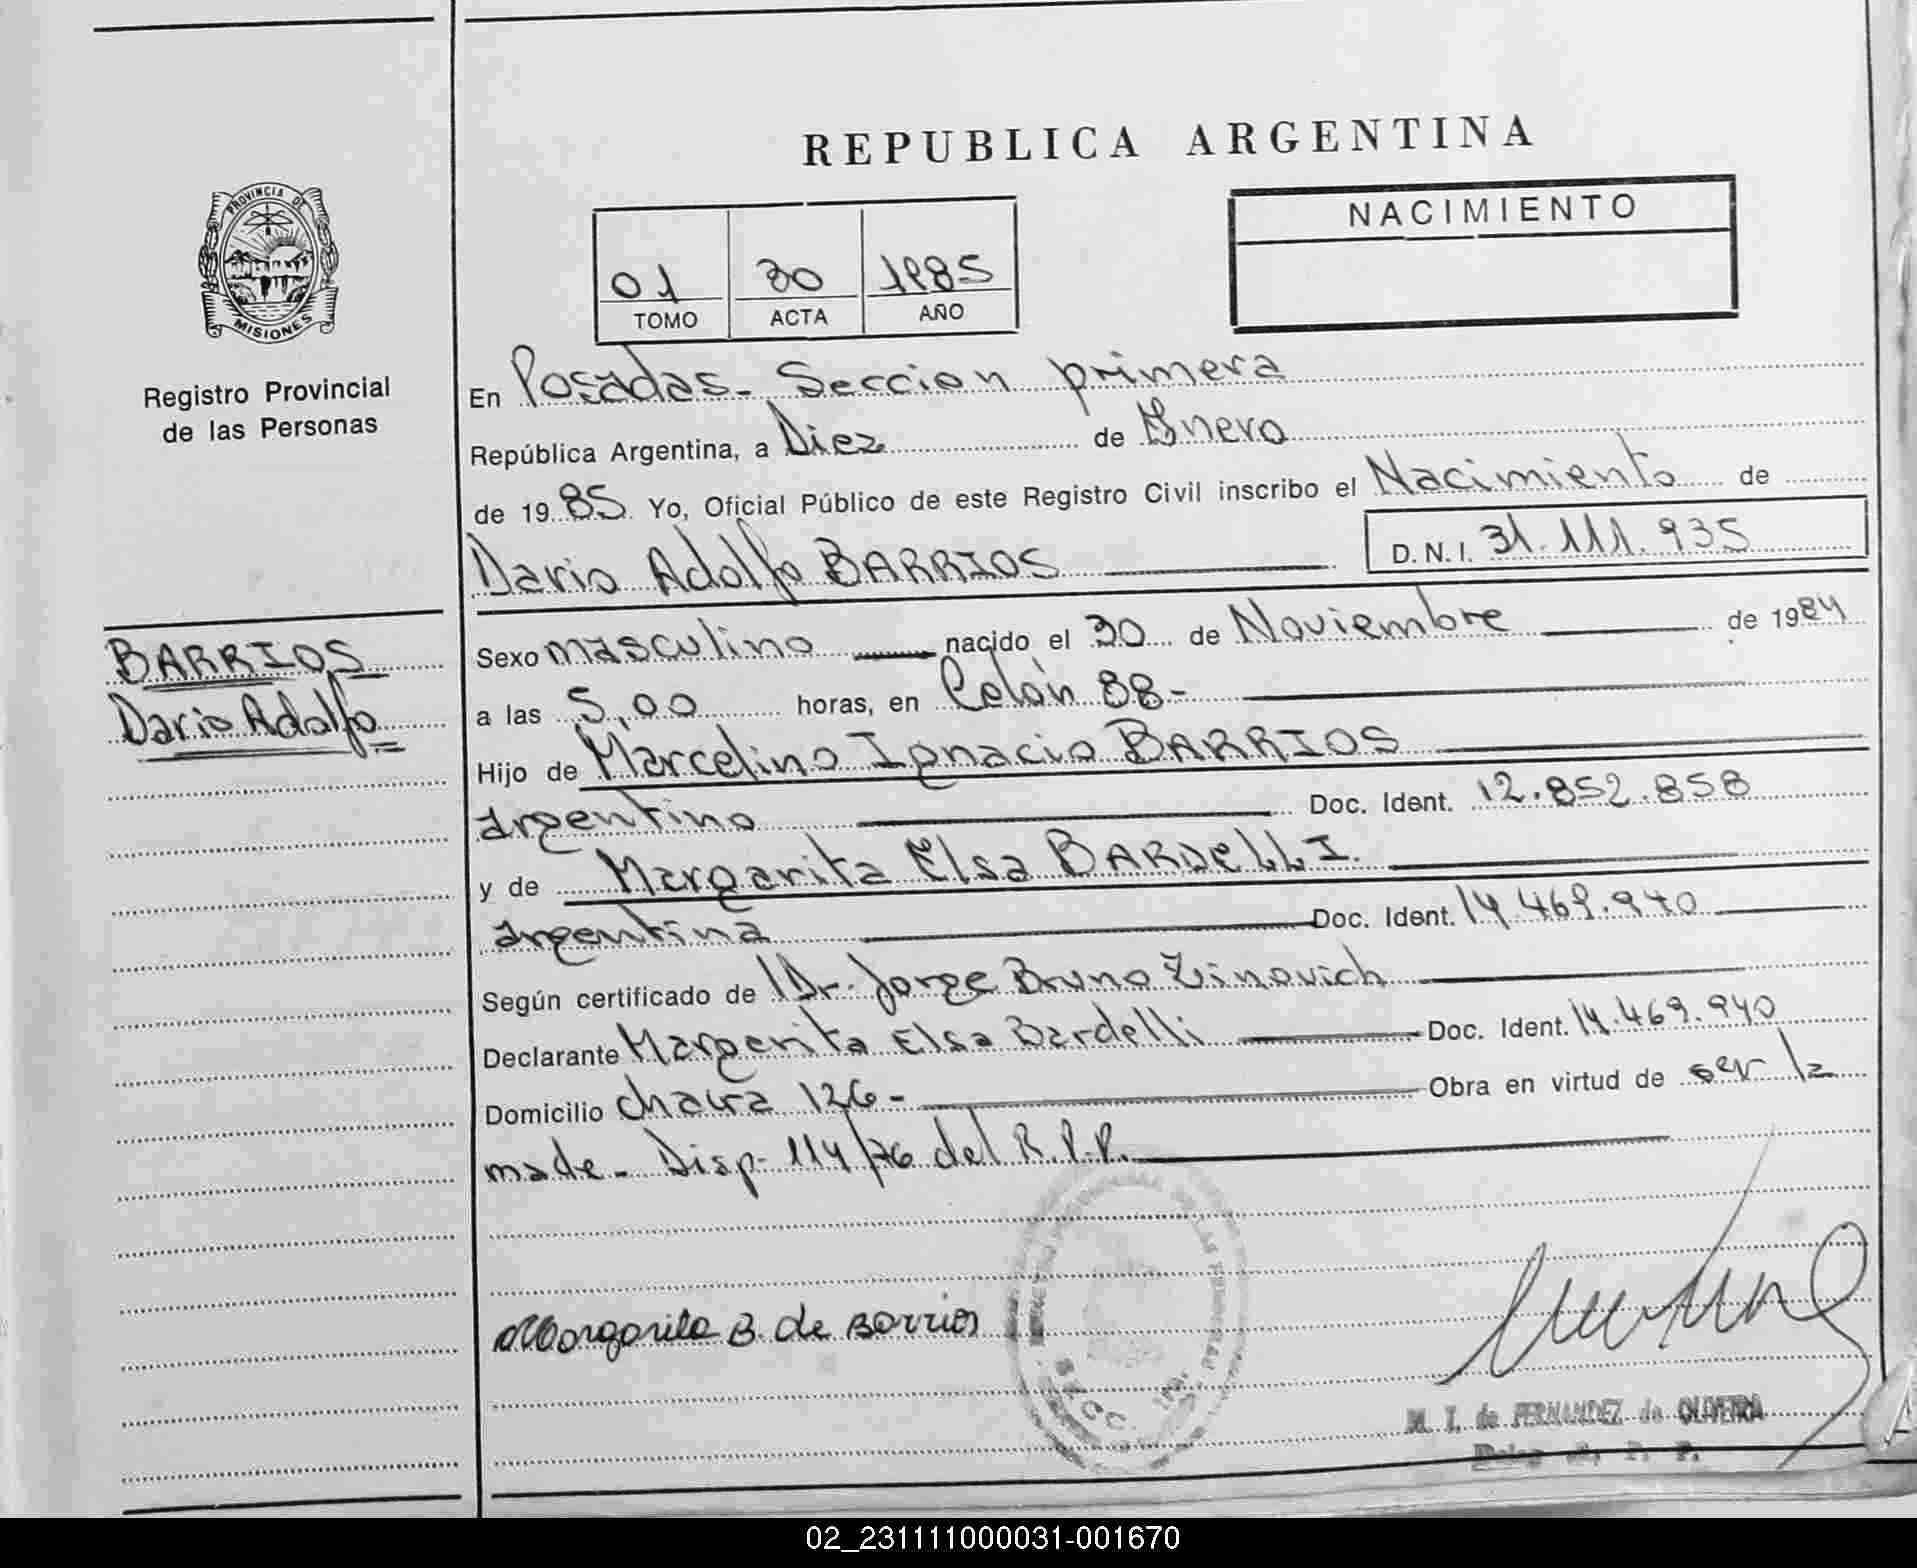 REPUBLICA ARGENTINA
PROVINCIA DE
MISIONES
Registro Provincial
de las Personas
01 30 1985
TOMO ACTA AÑO
NACIMIENTO
En Posadas- Seccion primera
República Argentina, a Diez de Enero
de 1985 Yo, Oficial Público de este Registro Civil inscribo el Nacimiento de
Dario Adolfo BARRIOS D.N.I. 31.111.935
BARRIOS
Dario Adolfo
Sexo masculino nacido el 30 de Noviembre de 1984
a las 5,00 horas, en Colón 88-
Hijo de Marcelino Ignacio BARRIOS
argentino Doc. Ident. 12.852.858
y de Margarita Elsa BARDELLI.
argentina Doc. Ident. 14.469.940
Según certificado de Dr. Jorge Bruno Zinovich
Declarante Margarita Elsa Bardelli Doc. Ident. 14.469.940
Domicilio chacra 126- Obra en virtud de ser la
madre- Disp- 114/76 del R.P.P.
Margarita B. de Barrios
SECC.
M. I. de FERNANDEZ de OLIVEIRA
R. P. P.
02_231111000031-001670